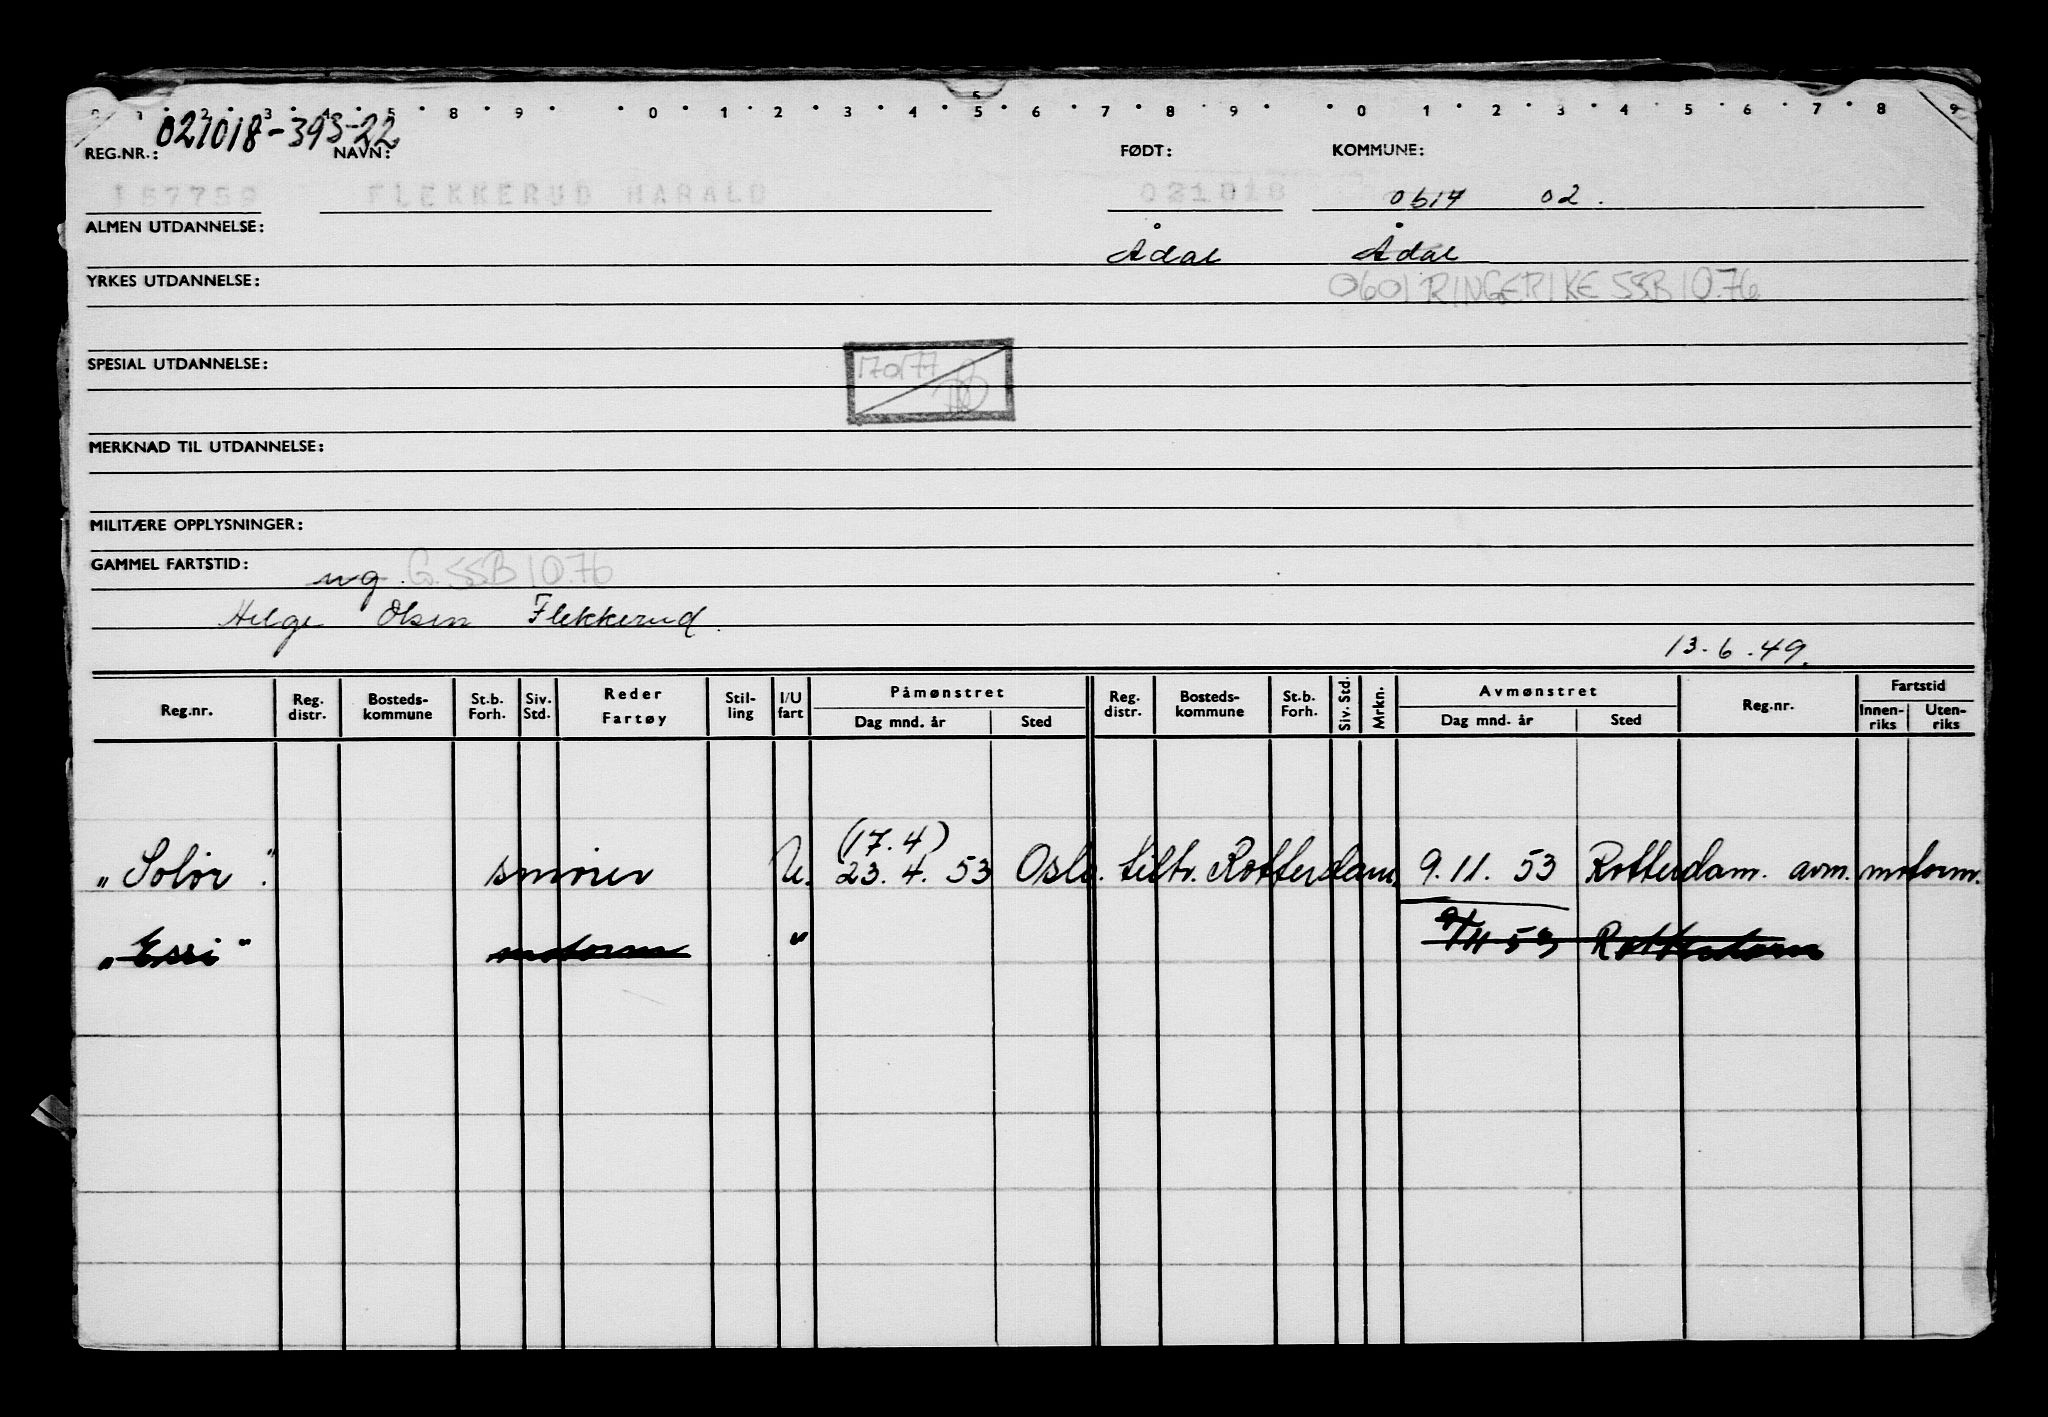 021018-393-22
REG.NR.: NAVN: FØDT: KOMMUNE:
157759 FLEKKERUD HARALD 021018 0617 02.
ALMEN UTDANNELSE: Ådal Ådal
YRKES UTDANNELSE: 0601 RINGERIKE SSB 10.76
SPESIAL UTDANNELSE:
170177
MERKNAD TIL UTDANNELSE:
MILITÆRE OPPLYSNINGER:
GAMMEL FARTSTID: ug. G. SSB 10.76
Helge Olsen Flekkerud.
13.6.49.
Reg.nr. Reg. distr. Bosteds-kommune St.b. Forh. Siv. Std. Reder Fartøy Stil-ling I/U fart Påmønstret Dag mnd. år Sted Reg. distr. Bosteds-kommune St.b. Forh. Siv. Std. Mrkn. Avmønstret Dag mnd. år Sted Reg.nr. Fartstid Innen-riks Uten-riks
(17.4)
"Solør". smører U. 23.4.53 Oslo. tiltr. Rotterdam. 9.11.53 Rotterdam. avm. motorm.
"Essi" motorm " 9/11 53 Rotterdam